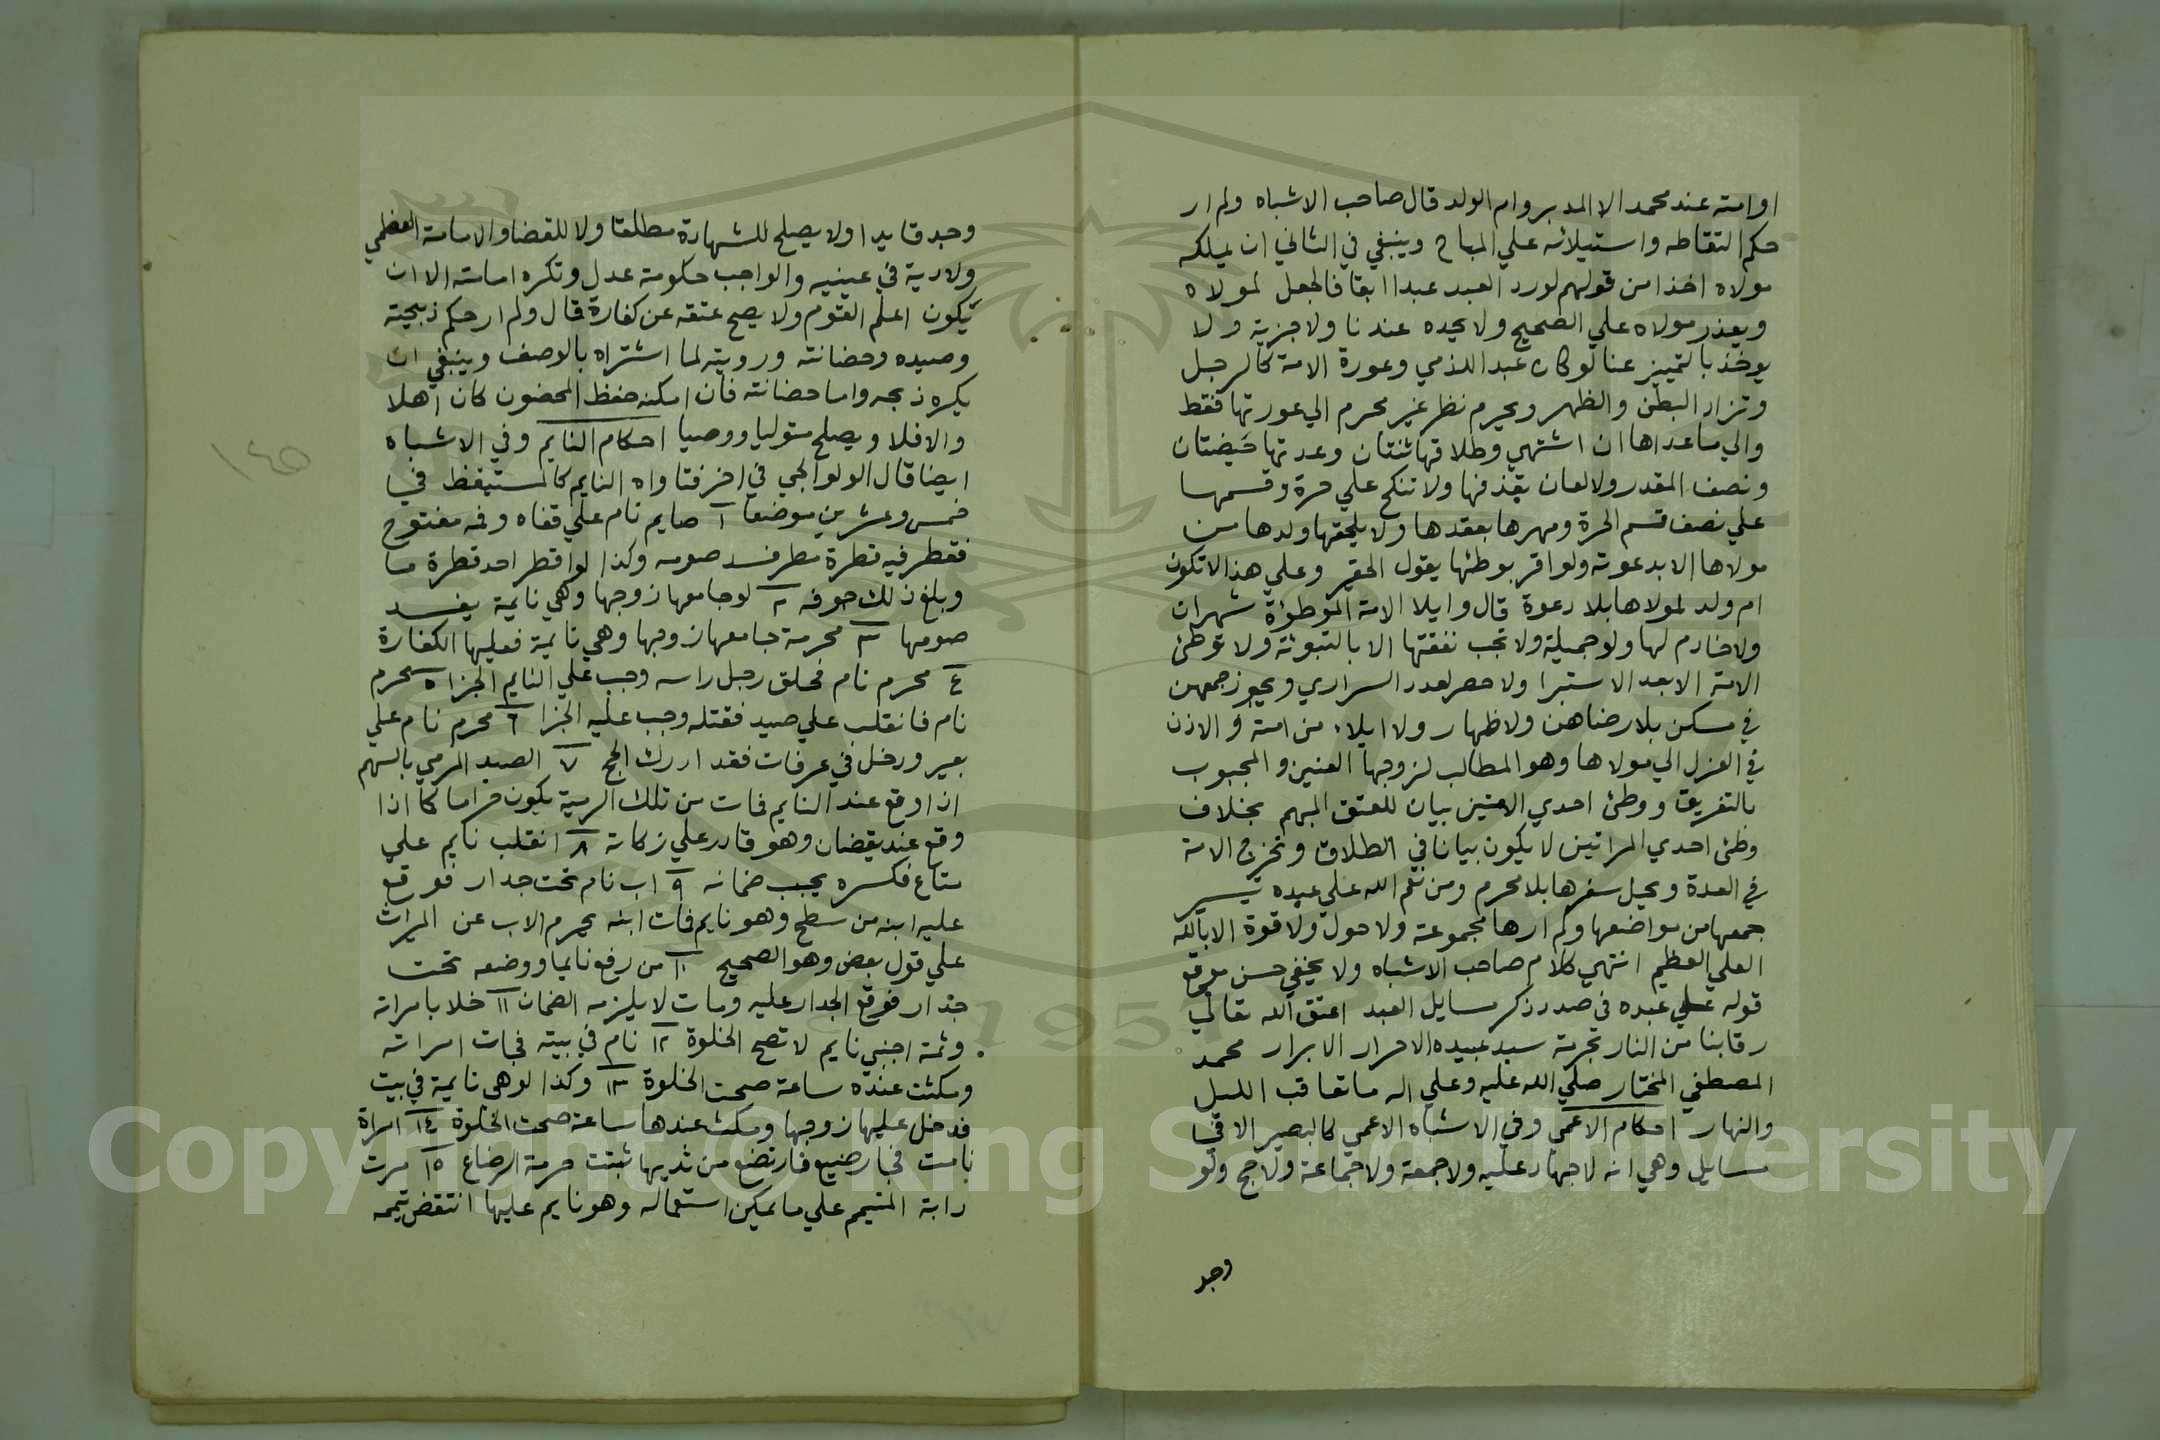 او امته عند محمد الا المدبر وام الولد قال صاحب الاشباه ولم ار
حكم التقاطه واستيلائه علي المباح وينبغي في الثاني ان يملكه
مولاه اخذا من قولهم لورد العبد عبدا ابقا فالجعل لمولاه
ويعذر مولاه علي الصحيح ولا يحده عندنا ولا جزية ولا
يوخذ بالتمييز عنا لو كان عبدا لذمي وعورة الامة كالرجل
وتزاد البطن والظهر ويحرم نظر غير محرم الي عورتها فقط
والي ما عداها ان اشتهي وطلاقها ثنتان وعدتها حيضتان
ونصف المقدر ولا لعان بقذفها ولا تنكح علي حرة وقسمها
علي نصف قسم الحرة ومهرها بعقدها ولا يلحقها ولدها من
مولاها الا بدعوته ولو اقر بوطئها يقول الحقير وعلي هذا لا تكون
ام ولد لمولاها بلا دعوة قال وايلا الامة الموطؤة شهران
ولا خادم لها ولو جميلة ولا تجب نفقتها الا بالتبوئة ولا توطئ
الامة الا بعد الاستبرا ولا حصر لعدد السراري ويجوز جمعهن
في مسكن بلا رضاهن ولا ظهار ولا ايلاء من امته والاذن
في العزل الي مولاها وهو المطالب لزوجها العنين والمجبوب
بالتفريق ووطئ احدي الامتين بيان للعتق المبهم بخلاف
وطئ احدي المراتين لا يكون بيانا في الطلاق وتخرج الامة
في العدة ويحل سفرها بلا محرم ومن نعم الله علي عبده تيسير
جمعها من مواضعها ولم ارها مجموعة ولا حول ولا قوة الا بالله
العلي العظيم انتهي كلام صاحب الاشباه ولا يخفي حسن موقع
قوله علي عبده في صدر ذكر مسايل العبد اعتق الله تعالي
رقابنا من النار بحرمة سيد عبيده الاحرار الابرار محمد
المصطفي المختار صلي الله عليه وعلي اله ما تعاقب الليل
والنهار احكام الاعمي وفي الاشباه الاعمي كالبصير الا في
مسايل وهي انه لا جهاد عليه ولا جمعة ولا جماعة ولا حج ولو
وجد
وجد قايدا ولا يصلح للشهادة مطلقا ولا للقضا والامامة العظمي
ولا دية في عينيه والواجب حكومة عدل وتكره امامته الا ان
يكون اعلم القوم ولا يصح عتقه عن كفارة قال ولم ار حكم ذبيحته
وصيده وحضانته ورويته لما اشتراه بالوصف وينبغي ان
يكره ذبحه واما حضانته فان امكنه حفظ المحضون كان اهلا
والا فلا ويصلح متوليا ووصيا احكام النايم وفي الاشباه
ايضا قال الولوالجي في اخر فتاواه النايم كالمستيقظ في
خمس وعشرين موضعا ١ صايم نام علي قفاه وفمه مفتوح
فقطر فيه قطرة مطر فسد صومه وكذا لو اقطر احد قطرة ما
وبلغ ذلك جوفه ٢ لو جامعها زوجها وهي نايمة يفسد
صومها ٣ محرمة جامعها زوجها وهي نايمة فعليها الكفارة
٤ محرم نام فحلق رجل راسه وجب علي النايم الجزا ٥ محرم
نام فانقلب علي صيد فقتله وجب عليه الجزا ٦ محرم نام علي
بعير ودخل في عرفات فقد ادرك الحج ٧ الصيد المرمي بالسهم
اذا وقع عند النايم فمات من تلك الرمية يكون حراما كما اذا
وقع عند يقضان وهو قادر علي زكاته ٨ انقلب نايم علي
متاع فكسره يجب ضمانه ٩ اب نام تحت جدار فوقع
عليه ابنه من سطح وهو نايم فمات ابنه يحرم الاب عن الميراث
علي قول بعض وهو الصحيح ١٠ من رفع نايما ووضعه تحت
جدار فوقع الجدار عليه ومات لا يلزمه الضمان ١١ خلا بامراته
وثمة اجنبي نايم لا تصح الخلوة ١٢ نام في بيته فجات امراته
ومكثت عنده ساعة صحت الخلوة ١٣ وكذا لو هي نايمة في بيت
فدخل عليها زوجها ومكث عندها ساعة صحت الخلوة ١٤ امراة
نامت فجا رضيع فارتضع من ثديها ثبتت حرمة الرضاع ١٥ مرت
دابة المتيمم علي ما يمكن استعماله وهو نايم عليها انتقض تيممه
١٤٥
Copyright © King Saud University
1957